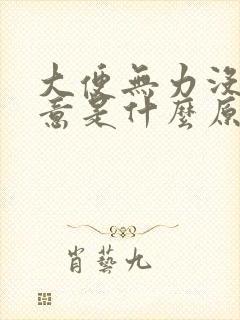 大便無力沒
意是什麼原
肖藝九